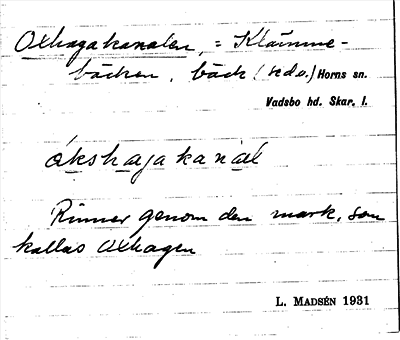 Oxhagakanalen, = Klämme-
bäcken, bäck (se d.o.) Horns sn.
Vadsbo hd. Skar. l.
ókshagakanál
Rinner genom den mark, som
kallas Oxhagen
L. MADSÉN 1931